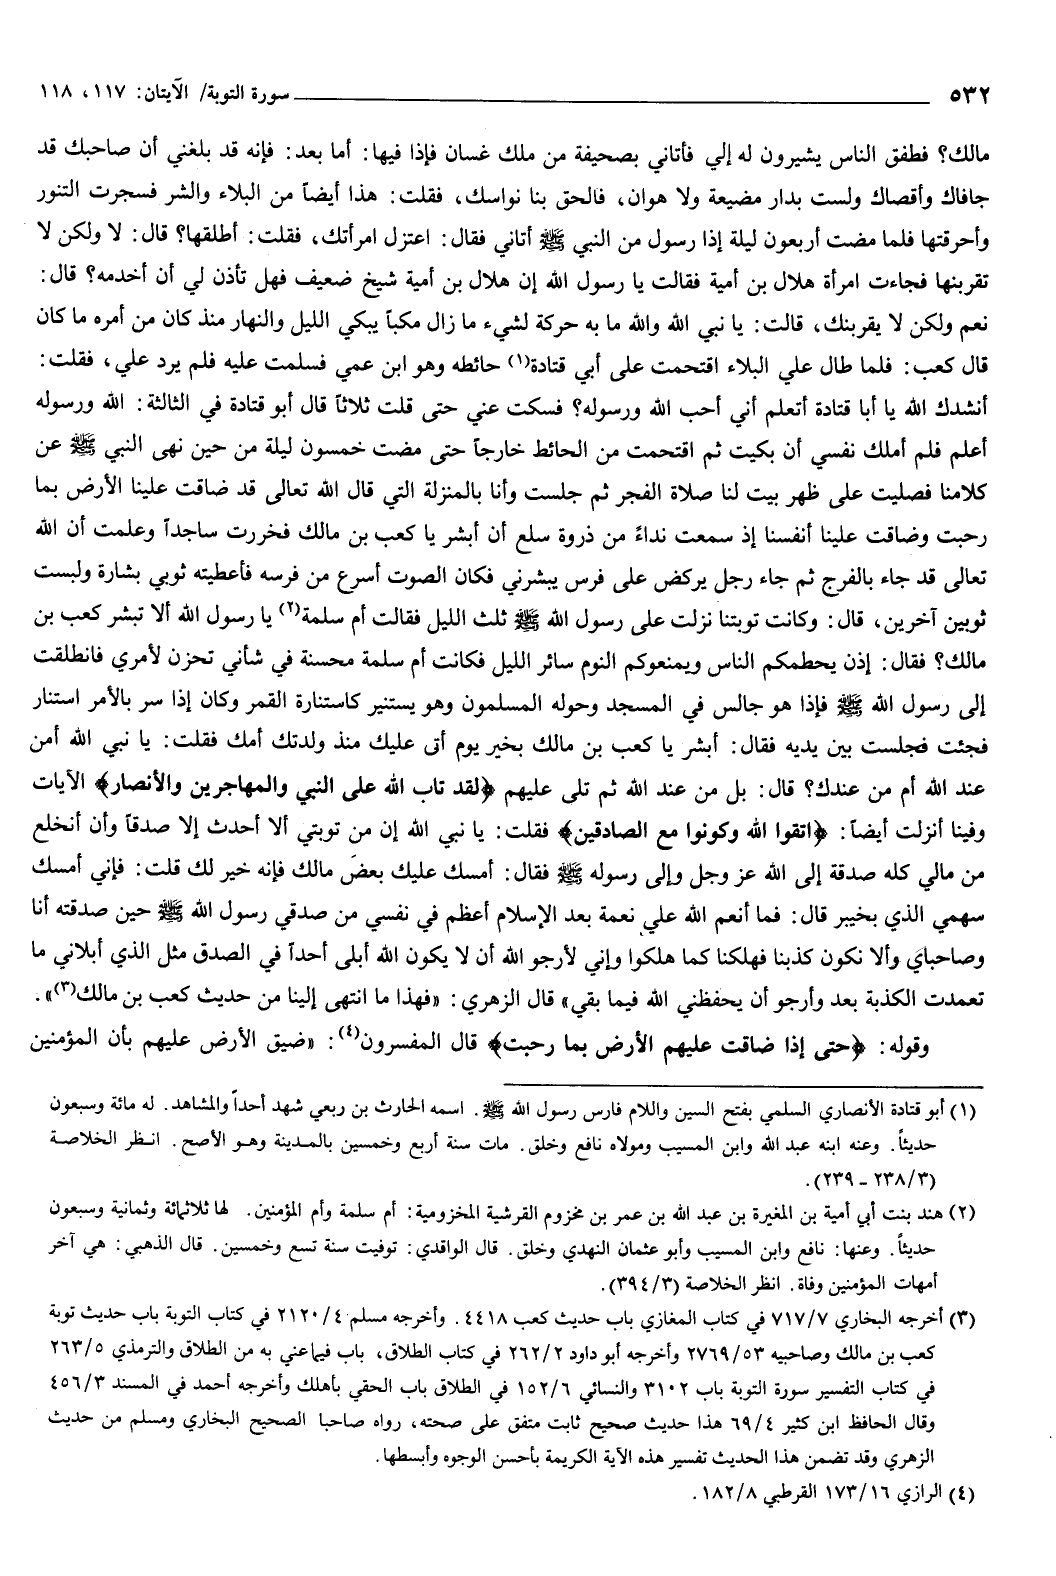 ٥٣٢ سورة التوبة/ الآيتان: ١١٧، ١١٨
مالك؟ فطفق الناس يشيرون له إلي فأتاني بصحيفة من ملك غسان فإذا فيها: أما بعد: فإنه قد بلغني أن صاحبك قد
جافاك وأقصاك ولست بدار مضيعة ولا هوان، فالحق بنا نواسك، فقلت: هذا أيضاً من البلاء والشر فسجرت التنور
وأحرقتها فلما مضت أربعون ليلة إذا رسول من النبي ﷺ أتاني فقال: اعتزل امرأتك، فقلت: أطلقها؟ قال: لا ولكن لا
تقربنها فجاءت امرأة هلال بن أمية فقالت يا رسول الله إن هلال بن أمية شيخ ضعيف فهل تأذن لي أن أخدمه؟ قال:
نعم ولكن لا يقربنك، قالت: يا نبي الله والله ما به حركة لشيء ما زال مكباً يبكي الليل والنهار منذ كان من أمره ما كان
قال كعب: فلما طال علي البلاء اقتحمت على أبي قتادة(١) حائطه وهو ابن عمي فسلمت عليه فلم يرد علي، فقلت:
أنشدك الله يا أبا قتادة أتعلم أني أحب الله ورسوله؟ فسكت عني حتى قلت ثلاثاً قال أبو قتادة في الثالثة: الله ورسوله
أعلم فلم أملك نفسي أن بكيت ثم اقتحمت من الحائط خارجاً حتى مضت خمسون ليلة من حين نهى النبي ﷺ عن
كلامنا فصليت على ظهر بيت لنا صلاة الفجر ثم جلست وأنا بالمنزلة التي قال الله تعالى قد ضاقت علينا الأرض بما
رحبت وضاقت علينا أنفسنا إذ سمعت نداءً من ذروة سلع أن أبشر يا كعب بن مالك فخررت ساجداً وعلمت أن الله
تعالى قد جاء بالفرج ثم جاء رجل يركض على فرس يبشرني فكان الصوت أسرع من فرسه فأعطيته ثوبي بشارة ولبست
ثوبين آخرين، قال: وكانت توبتنا نزلت على رسول الله ﷺ ثلث الليل فقالت أم سلمة(٢) يا رسول الله ألا تبشر كعب بن
مالك؟ فقال: إذن يحطمكم الناس ويمنعوكم النوم سائر الليل فكانت أم سلمة محسنة في شأني تحزن لأمري فانطلقت
إلى رسول الله ﷺ فإذا هو جالس في المسجد وحوله المسلمون وهو يستنير كاستنارة القمر وكان إذا سر بالأمر استنار
فجئت فجلست بين يديه فقال: أبشر يا كعب بن مالك بخير يوم أتى عليك منذ ولدتك أمك فقلت: يا نبي الله أمن
عند الله أم من عندك؟ قال: بل من عند الله ثم تلى عليهم ﴿لقد تاب الله على النبي والمهاجرين والأنصار﴾ الآيات
وفينا أنزلت أيضاً: ﴿اتقوا الله وكونوا مع الصادقين﴾ فقلت: يا نبي الله إن من توبتي ألا أحدث إلا صدقاً وأن أنخلع
من مالي كله صدقة إلى الله عز وجل وإلى رسوله ﷺ فقال: أمسك عليك بعضَ مالك فإنه خير لك قلت: فإني أمسك
سهمي الذي بخيبر قال: فما أنعم الله علي نعمة بعد الإسلام أعظم في نفسي من صدقي رسول الله ﷺ حين صدقته أنا
وصاحباي وألا نكون كذبنا فهلكنا كما هلكوا وإني لأرجو الله أن لا يكون الله أبلى أحداً في الصدق مثل الذي أبلاني ما
تعمدت الكذبة بعد وأرجو أن يحفظني الله فيما بقي» قال الزهري: «فهذا ما انتهى إلينا من حديث كعب بن مالك(٣)».
وقوله: ﴿حتى إذا ضاقت عليهم الأرض بما رحبت﴾ قال المفسرون(٤): «ضيق الأرض عليهم بأن المؤمنين
(١) أبو قتادة الأنصاري السلمي بفتح السين واللام فارس رسول الله ﷺ. اسمه الحارث بن ربعي شهد أحداً والمشاهد. له مائة وسبعون
حديثاً. وعنه ابنه عبد الله وابن المسيب ومولاه نافع وخلق. مات سنة أربع وخمسين بالمدينة وهو الأصح. انظر الخلاصة
(٣/ ٢٣٨ - ٢٣٩).
(٢) هند بنت أبي أمية بن المغيرة بن عبد الله بن عمر بن مخزوم القرشية المخزومية: أم سلمة وأم المؤمنين. لها ثلاثمائة وثمانية وسبعون
حديثاً. وعنها: نافع وابن المسيب وأبو عثمان النهدي وخلق. قال الواقدي: توفيت سنة تسع وخمسين. قال الذهبي: هي آخر
أمهات المؤمنين وفاة. انظر الخلاصة (٣/ ٣٩٤).
(٣) أخرجه البخاري ٧/ ٧١٧ في كتاب المغازي باب حديث كعب ٤٤١٨. وأخرجه مسلم ٤/ ٢١٢٠ في كتاب التوبة باب حديث توبة
كعب بن مالك وصاحبيه ٥٣/ ٢٧٦٩ وأخرجه أبو داود ٢/ ٢٦٢ في كتاب الطلاق، باب فيما عني به من الطلاق والترمذي ٥/ ٢٦٣
في كتاب التفسير سورة التوبة باب ٣١٠٢ والنسائي ٦/ ١٥٢ في الطلاق باب الحقي بأهلك وأخرجه أحمد في المسند ٣/ ٤٥٦
وقال الحافظ ابن كثير ٤/ ٦٩ هذا حديث صحيح ثابت متفق على صحته، رواه صاحبا الصحيح البخاري ومسلم من حديث
الزهري وقد تضمن هذا الحديث تفسير هذه الآية الكريمة بأحسن الوجوه وأبسطها.
(٤) الرازي ١٦/ ١٧٣ القرطبي ٨/ ١٨٢.